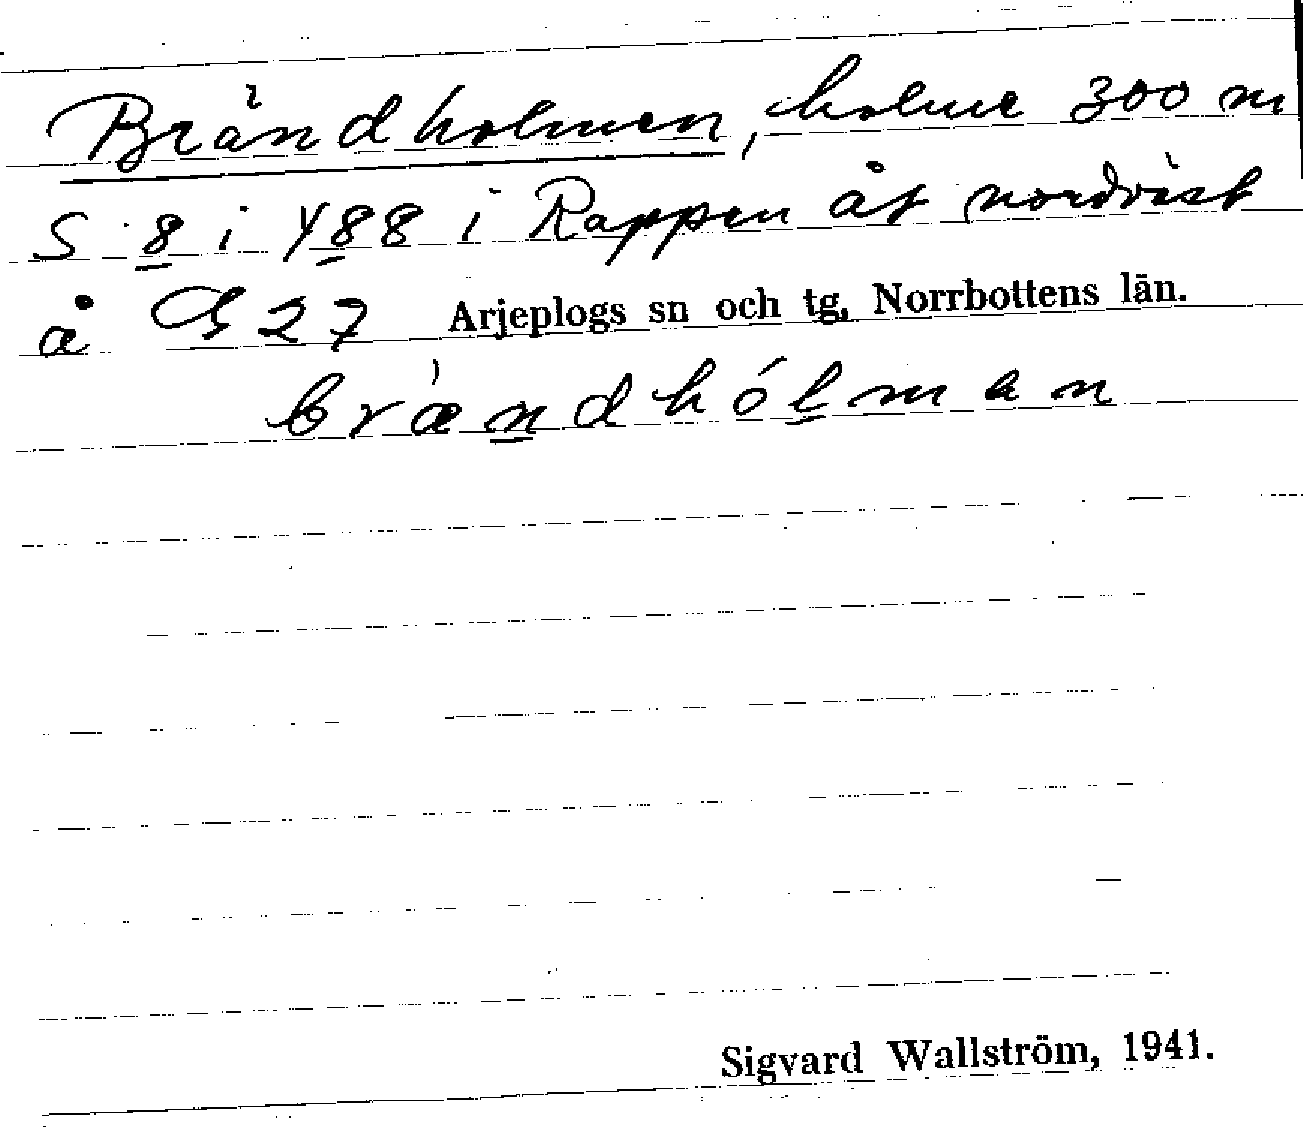 Brändholmen, holme 300 m
S 8 i 488 i Rappen åt nordväst
å G 27 Arjeplogs sn och tg, Norrbottens län.
brændhólman
Sigvard Wallström, 1941.